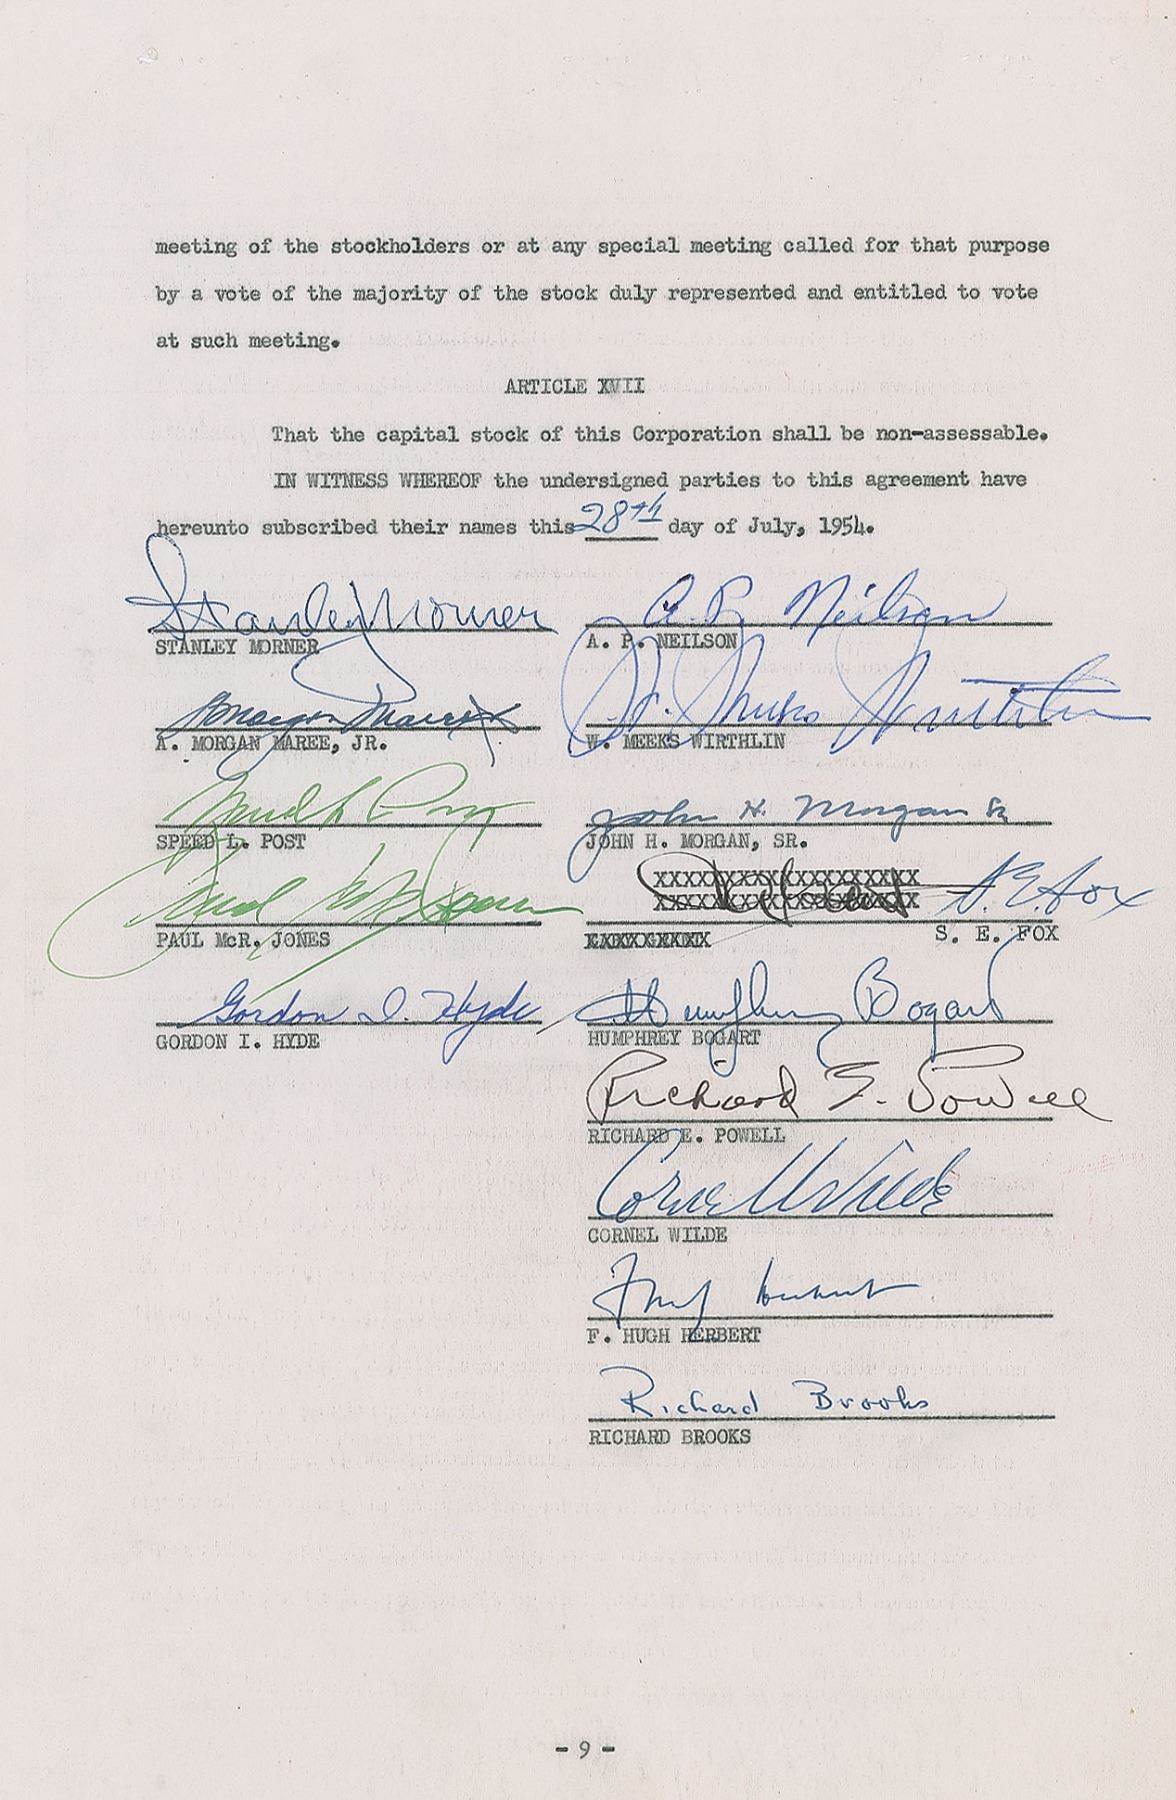 meeting of the stockholders or at any special meeting called for that purpose
by a vote of the majority of the stock duly represented and entitled to vote
at such meeting.
ARTICLE XVII
That the capital stock of this Corporation shall be non-assessable.
IN WITNESS WHEREOF the undersigned parties to this agreement have
hereunto subscribed their names this 28th day of July, 1954.
Stanley Morner A. P. Neilson
STANLEY MORNER A. P. NEILSON
A Morgan Maree Jr W. Meeks Wirthlin
A. MORGAN MAREE, JR. W. MEEKS WIRTHLIN
Speed L Post John H. Morgan Sr
SPEED L. POST JOHN H. MORGAN, SR.
XXXXXXXXXXXXXXXXXXXX
Paul McR Jones XXXXXXXXXXXXXXXXXXXX S. E. Fox
PAUL McR. JONES S. E. FOX
Gordon I. Hyde Humphrey Bogart
GORDON I. HYDE HUMPHREY BOGART
Richard E. Powell
RICHARD E. POWELL
Cornel Wilde
CORNEL WILDE
F Hugh Herbert
F. HUGH HERBERT
Richard Brooks
RICHARD BROOKS
- 9 -